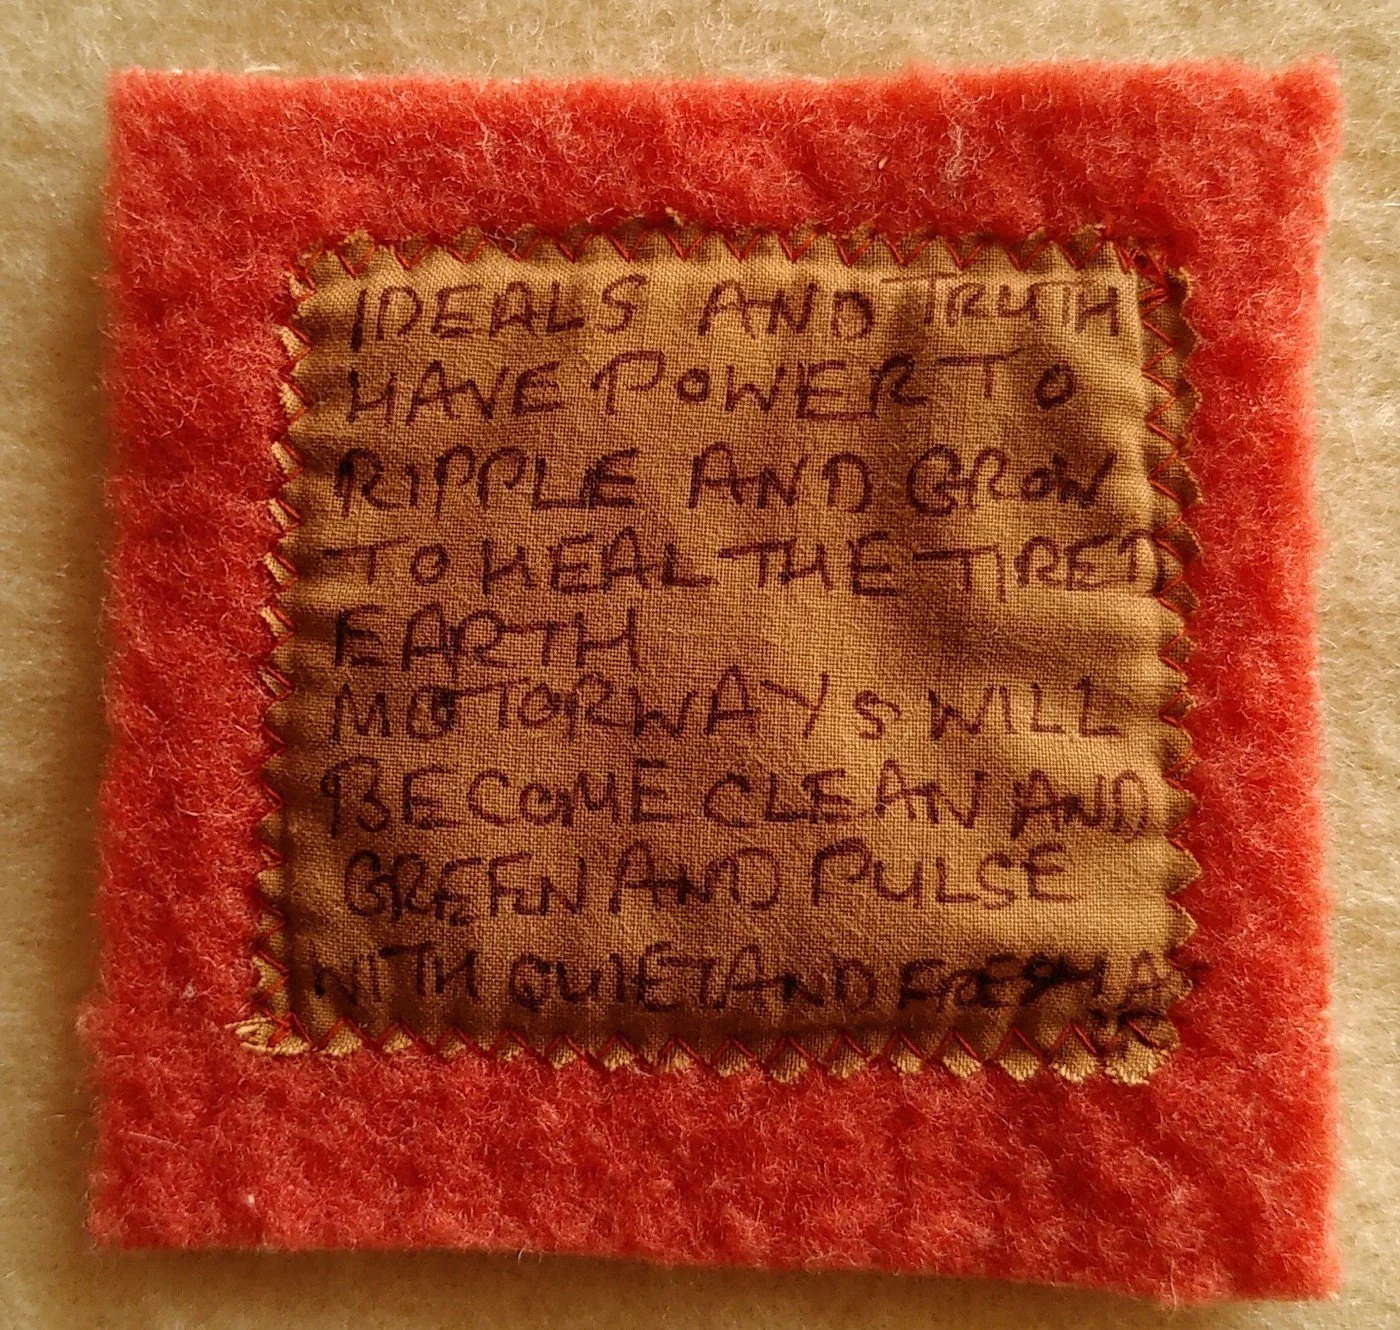 IDEALS AND TRUTH
HAVE POWER TO
RIPPLE AND GROW
TO HEAL THE TIRED
EARTH
MOTORWAYS WILL
BECOME CLEAN AND
GREEN AND PULSE
WITH QUIET AND FRESH A
IR